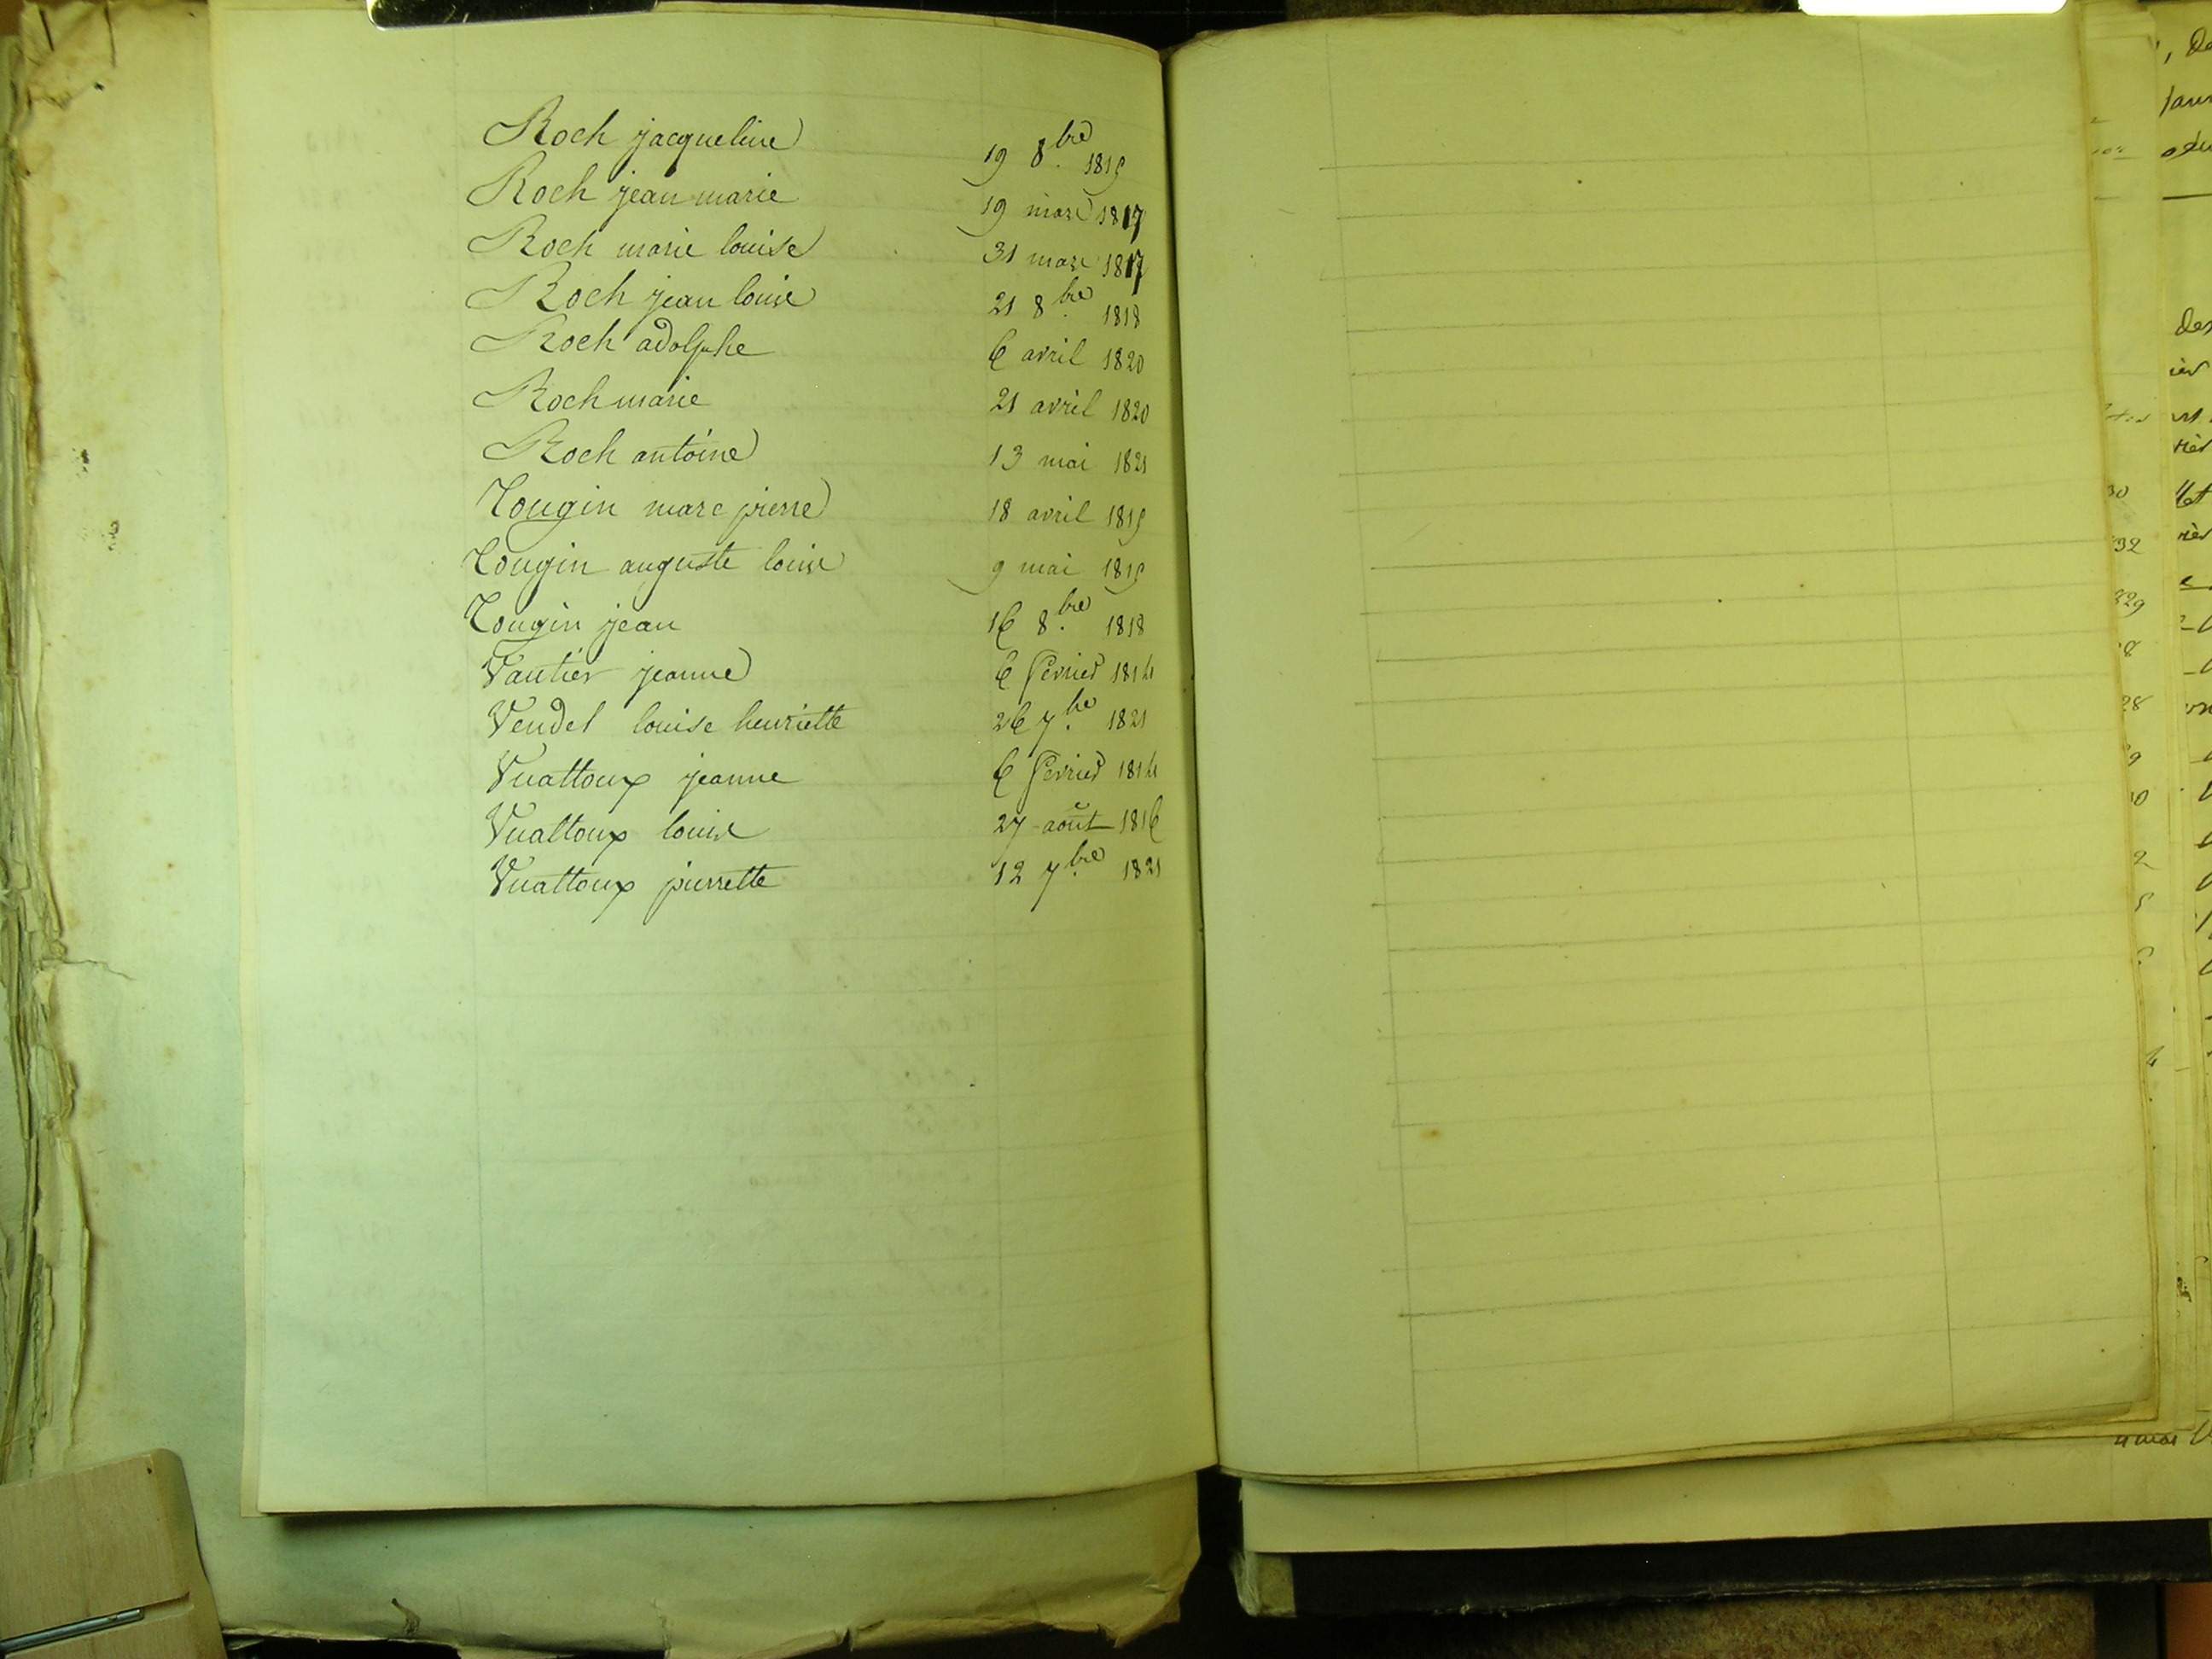 Roch jacqueline 19 8.bre 1815
Roch jean marie 19 mars 1817
Roch marie louise 31 mars 1817
Roch jean louis 21 8.bre 1818
Roch adolphe 6 avril 1820
Roch marie 21 avril 1820
Roch antoine 13 mai 1821
Tougin marc pierre 18 avril 1815
Tougin auguste louise 9 mai 1815
Tougin jean 16 8.bre 1818
Vautier jeanne 6 fevrier 1814
Vendel louise henriette 26 7.bre 1821
Vuattoux jeanne 6 fevrier 1814
Vuattoux louise 27 août 1816
Vuattoux pierrette 12 7.bre 1821